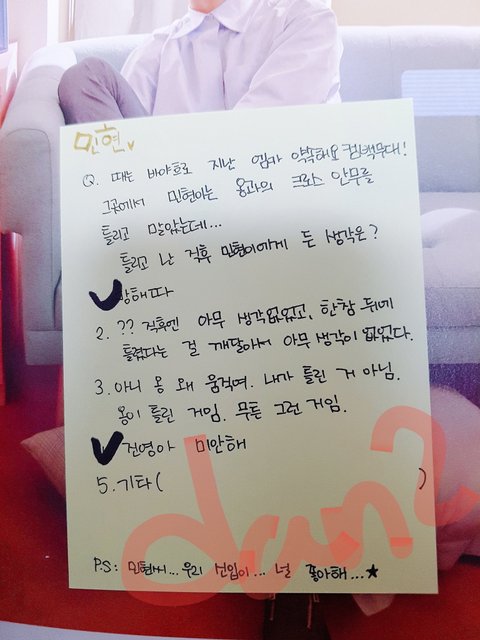 민현
Q. 때는 바야흐로 지난 엠카 약속해요 컴백무대!
그곳에서 민현이는 옹과의 크로스 안무를
틀리고 말았는데...
틀리고 난 직후 민현이에게 든 생각은?
망해따
2. ?? 직후엔 아무 생각없었고, 한참 뒤에
틀렸다는 걸 깨달아서 아무 생각이 없었다.
3. 아니 옹 왜 움직여. 내가 틀린 거 아님.
옹이 틀린 거임. 무튼 그런 거임.
진영아 미안해
5. 기타( )
P.S: 민현씨... 우리 선임이... 널 좋아해...★